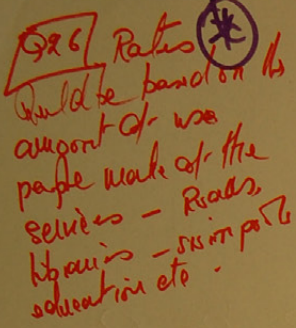 Q26 Rates
should be based on the
amount of use
people make of the
services - Roads,
libraries - swim pools
education etc.